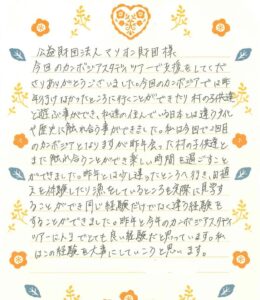 公益財団法人マリオン財団様
今回のカンボジアスタディツアーで支援をしてくだ
さりありがとうございました。今回のカンボジアでは昨
年行けなかったところに行くことができたり村の子供達
と遊ぶ事ができ、私達の住んでいる日本とは違う文化
や歴史に触れ合う事ができました。私は今回で2回目
のカンボジアとなりますが昨年会った村の子供達と
また触れ合うことができ楽しい時間を過ごすこと
ができました。昨年とは少し違ったところへ行き、田植
えを体験したり漁をしているところを実際に見学す
ることができ同じ経験だけでなく違う経験を
することができました。昨年と今年のカンボジアスタディ
ツアーは人生でとても良い経験だと思っています。私
はこの経験を大事にしていこうと思います。